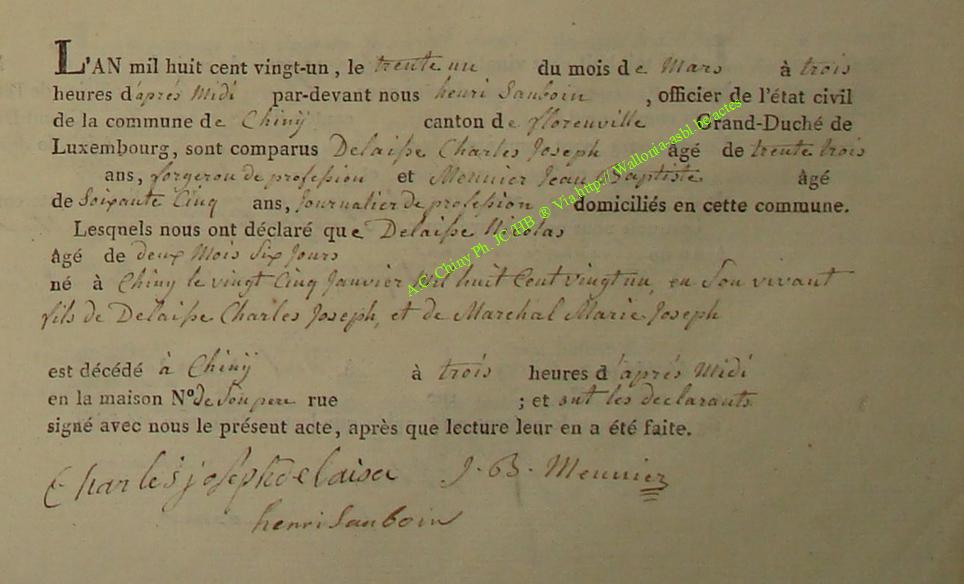 L'AN mil huit cent vingt-un, le trente un du mois de Mars à trois
heures d'aprés Midi par-devant nous henri Sauboin, officier de l'état civil
de la commune de Chinÿ canton de florenville Grand-Duché de
Luxembourg, sont comparus Delaisse Charles Joseph âgé de trente trois
ans, forgeron de profession et Meunier Jean Baptiste âgé
de Soixante Cinq ans, Journalier de profession domiciliés en cette commune.
Lesqnels nous ont déclaré que Delaisse Nicolas
âgé de deux Mois Six Jours
né à Chiny le vingt Cinq Janvier Mil huit Cent vingt un, en Son vivant
fils de Delaisse Charles Joseph, et de Marchal Marie Joseph
est décédé à Chinÿ à trois heures d'aprés Midi
en la maison Nº de Son pere rue ; et ont les declarants
signé avec nous le présent acte, après que lecture leur en a été faite.
Charles joseph delaisse J. B. Meunier
henri Sauboin
A.C. Chiny Ph. JC /HB ® Via http://Wallonia-asbl.be/actes